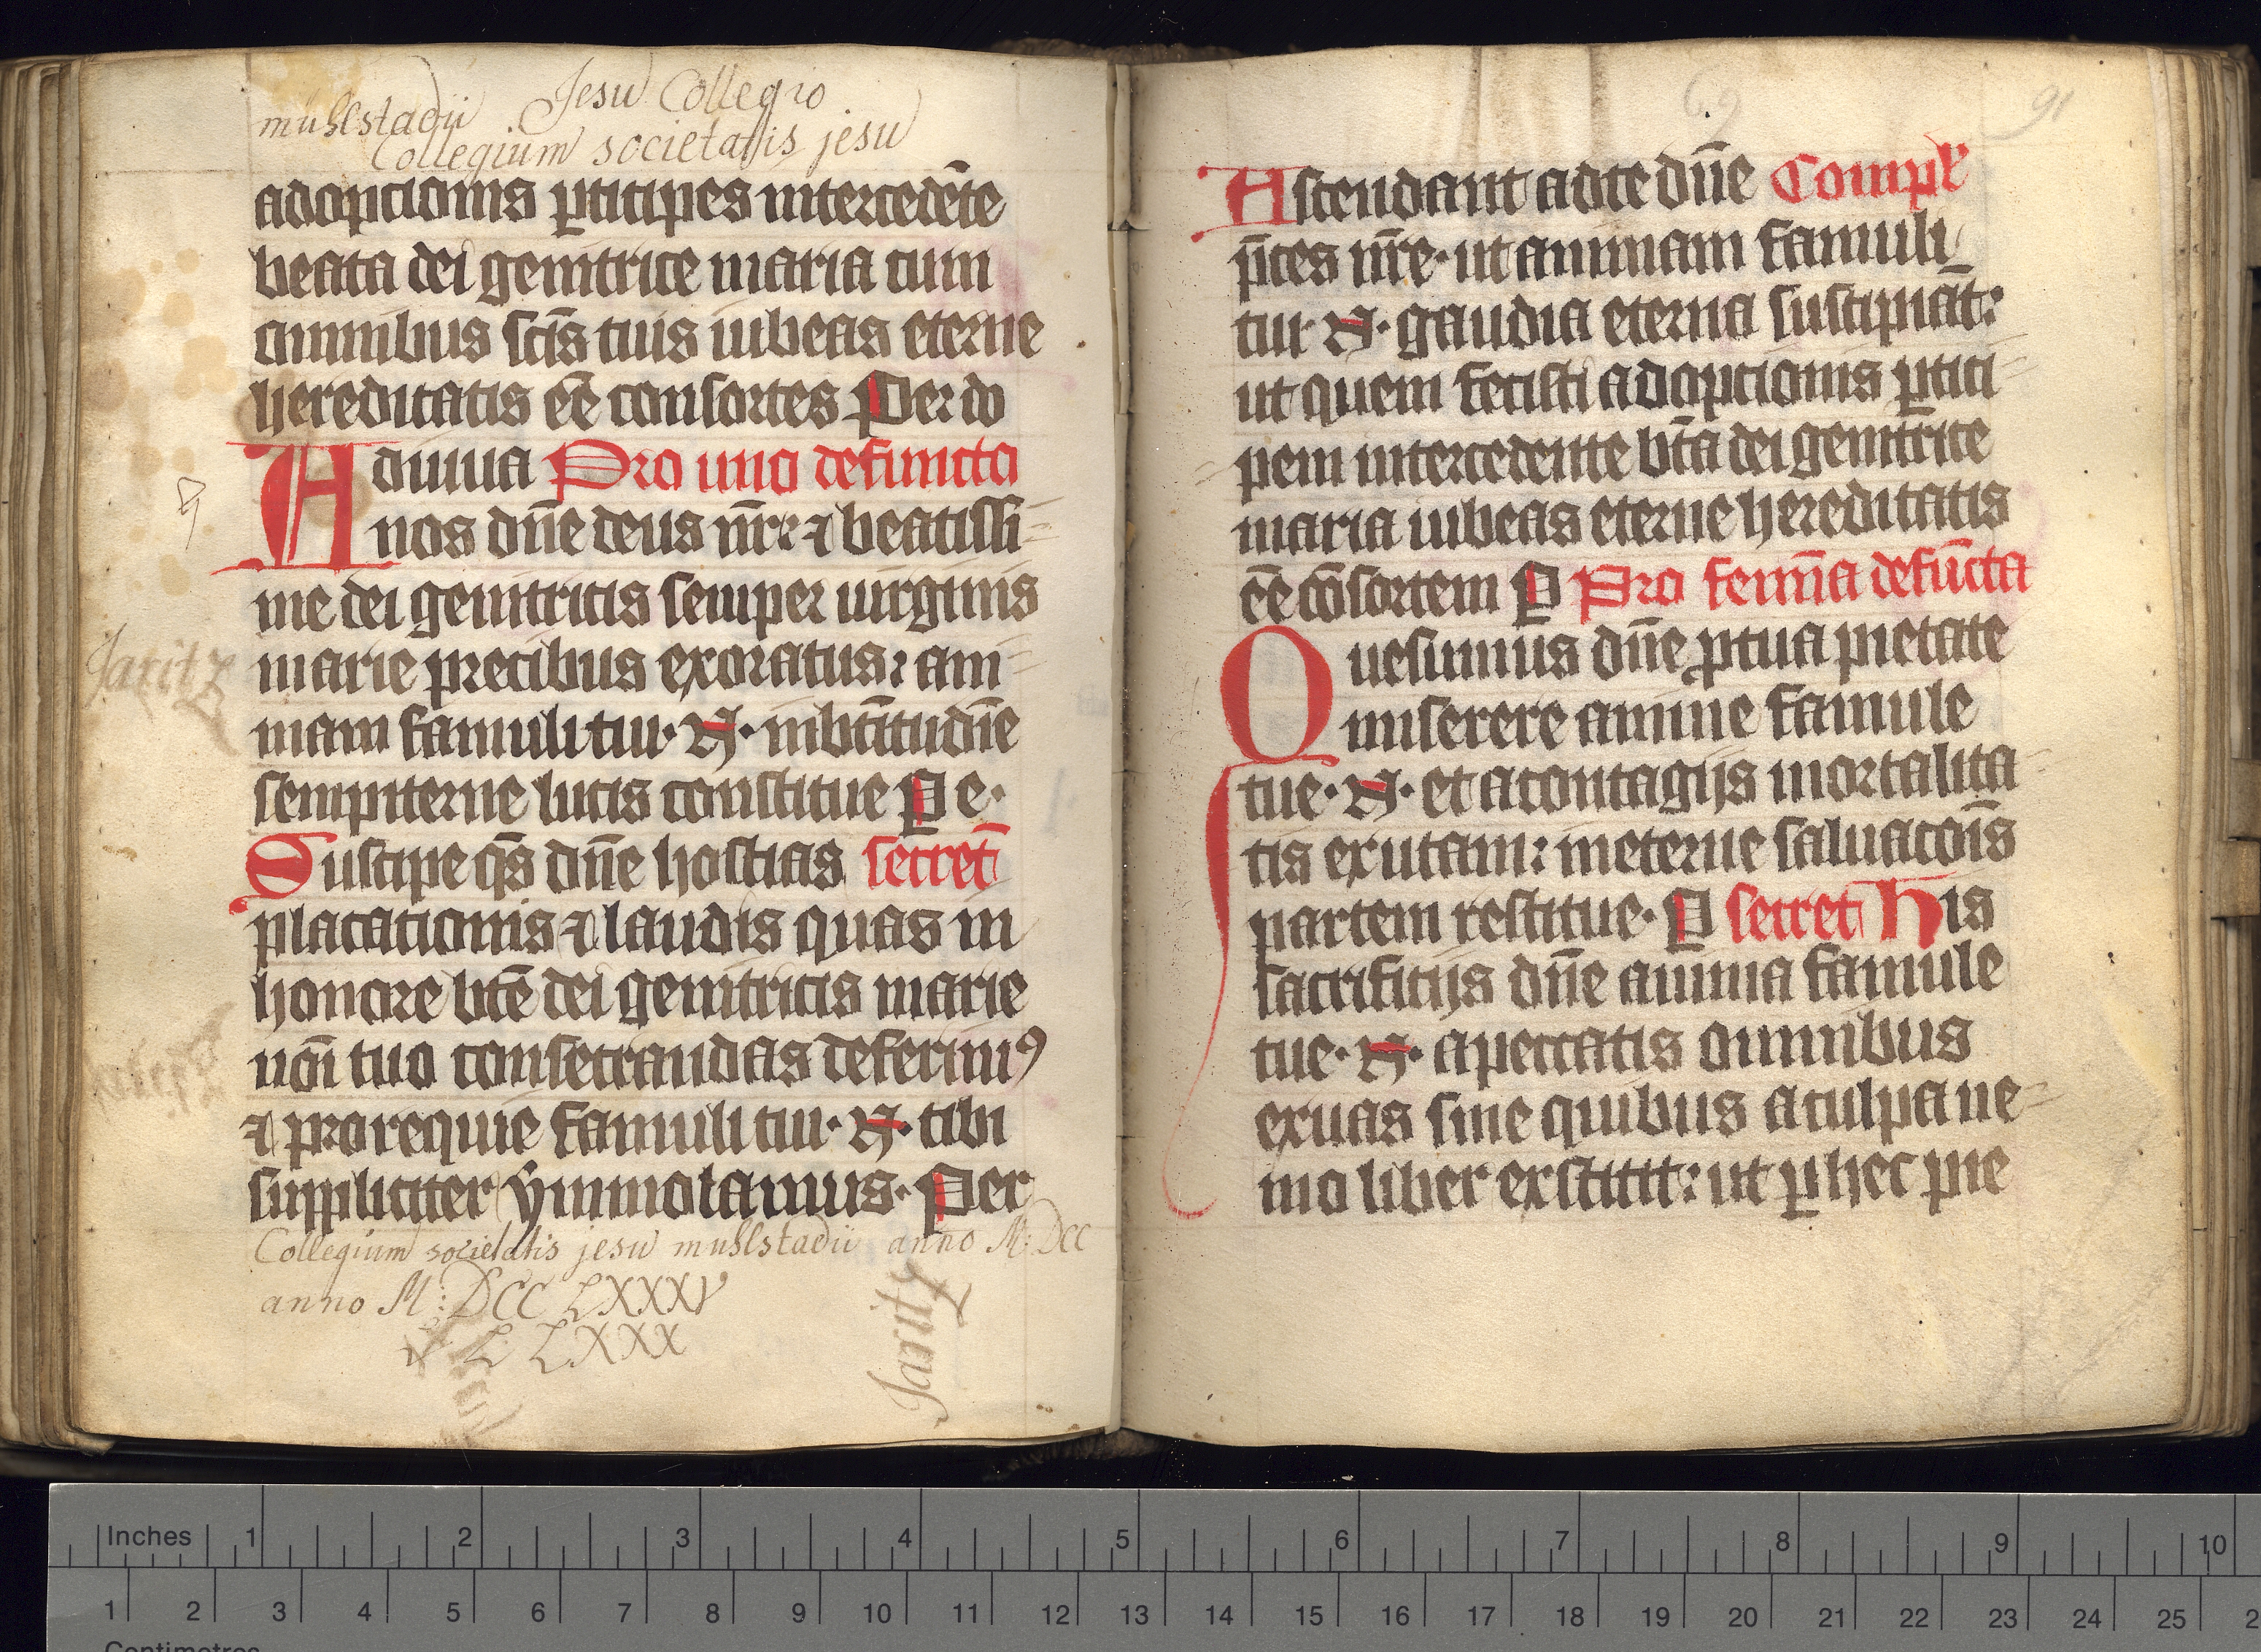 Jesu Collegio
muhlstadii
Collegium societatis jesu
adopcionis ꝑticipes intercedēte
beata dei genitrice maria cum
omnibus sc̄is tuis iubeas eterne
hereditatis ēē consortes Per do
Adiuua Pro uno defuncto
nos dn̄e deus nr̄: ⁊ beatissi=
me dei genitricis semper uirginis
marie precibus exoratus: ani=
mam famuli tui· N· in bt̄itudīe
sempiterne lucis constitue P e·
Suscipe qs̄ dn̄e hostias secret̄
placationis ⁊ laudis quas in
honore bt̄e dei genitricis marie
noī tuo consecrandas deferimꝰ
⁊ pro requie famuli tui· N· tibi
suppliciter ẏmmolamus· Per
Collegium societatis jesu muhlstadii anno M: DCC
anno M: DCC LXXXV
L LXXX
Jaritz
Jaritz
69
91
Ascendant ad te dn̄e Compł
p̄ces nr̄e· ut animam famuli
tui· N· gaudia eterna suscipiāt:
ut quem fecisti adopcionis ꝑtici=
pem intercedente bt̄a dei genitrice
maria iubeas eterne hereditatis
ēē cōsortem P Pro femīa defūcta
Quesumus dn̄e ꝓ tua pietate
miserere anime famule
tue· N· et a contagijs mortalita=
tis exutam: in eterne saluacōis
partem restitue· P secret His
sacrificijs dn̄e anima famule
tue· N· a peccatis omnibus
exuas sine quibus a culpa ne=
mo liber exstitit: ut ꝑ hec pie
Inches 1 2 3 4 5 6 7 8 9 10
1 2 3 4 5 6 7 8 9 10 11 12 13 14 15 16 17 18 19 20 21 22 23 24 25 2
Centimetres